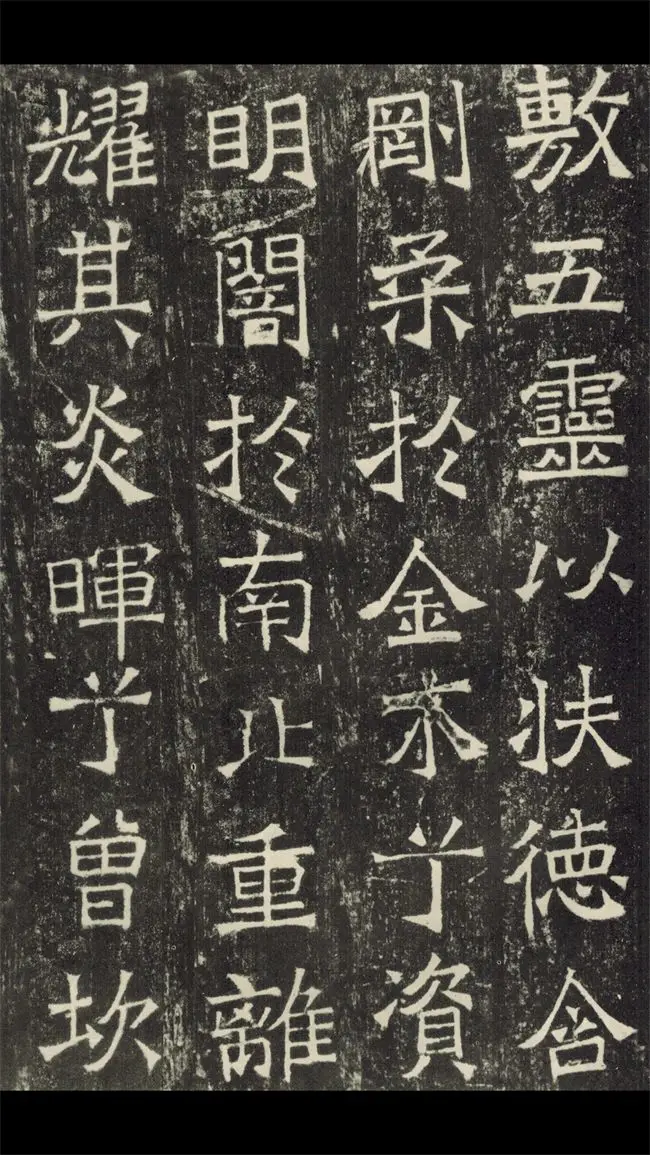 敷五靈以扶德含
剛柔於金木兮資
明闇於南北重離
耀其炎暉兮曾坎